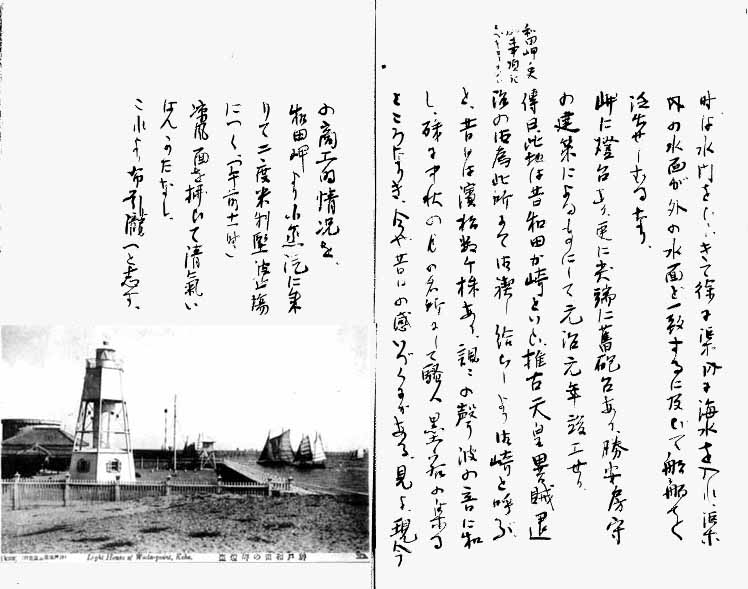 時は水門をひらきて徐々に渠内に海水を入れ渠
内の水面が外の水面と一致するに及びて船舶を
泛出せしむるなり、
岬に燈台あり、更に尖端に舊砲台あり、勝安房守
の建築によるものにして元治元年竣工せり、
和田岬の矣
傳曰、此地は昔和田が崎といひ、推古天皇異賊退
治の御為此所にて御禊し給ひしより御崎と呼ぶ
と、昔は濱松数ケ株あり、調この聲の波の音に和
し、殊に中秋の月の名所にして騒人墨客の集る
ところなりき、今や昔日の感いづくにかある、見よ、現今
の商工的情况を、
和田岬より小蒸汽に乗
りて二度米利堅波止場
につく(午前十一時)
凉風面を拂ひて清氣い
はんかたなし、
これより布引瀧へと志す、
Light House of Wada-point, Kobe.
神戸和田の岬燈臺